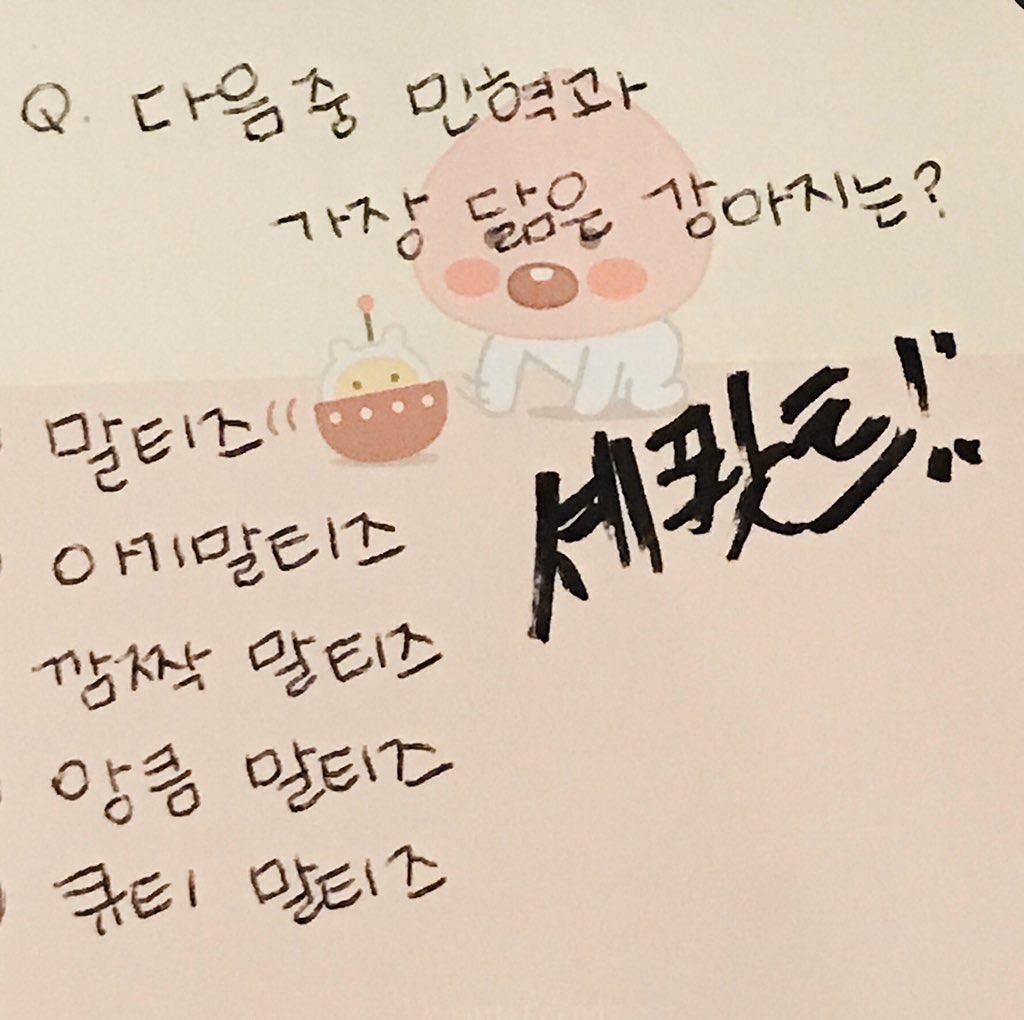 Q. 다음중 민혁과
가장 닮은 강아지는?
말티즈
애기말티즈
깜짝 말티즈
앙큼 말티즈
큐티 말티즈
셰퍞트!!